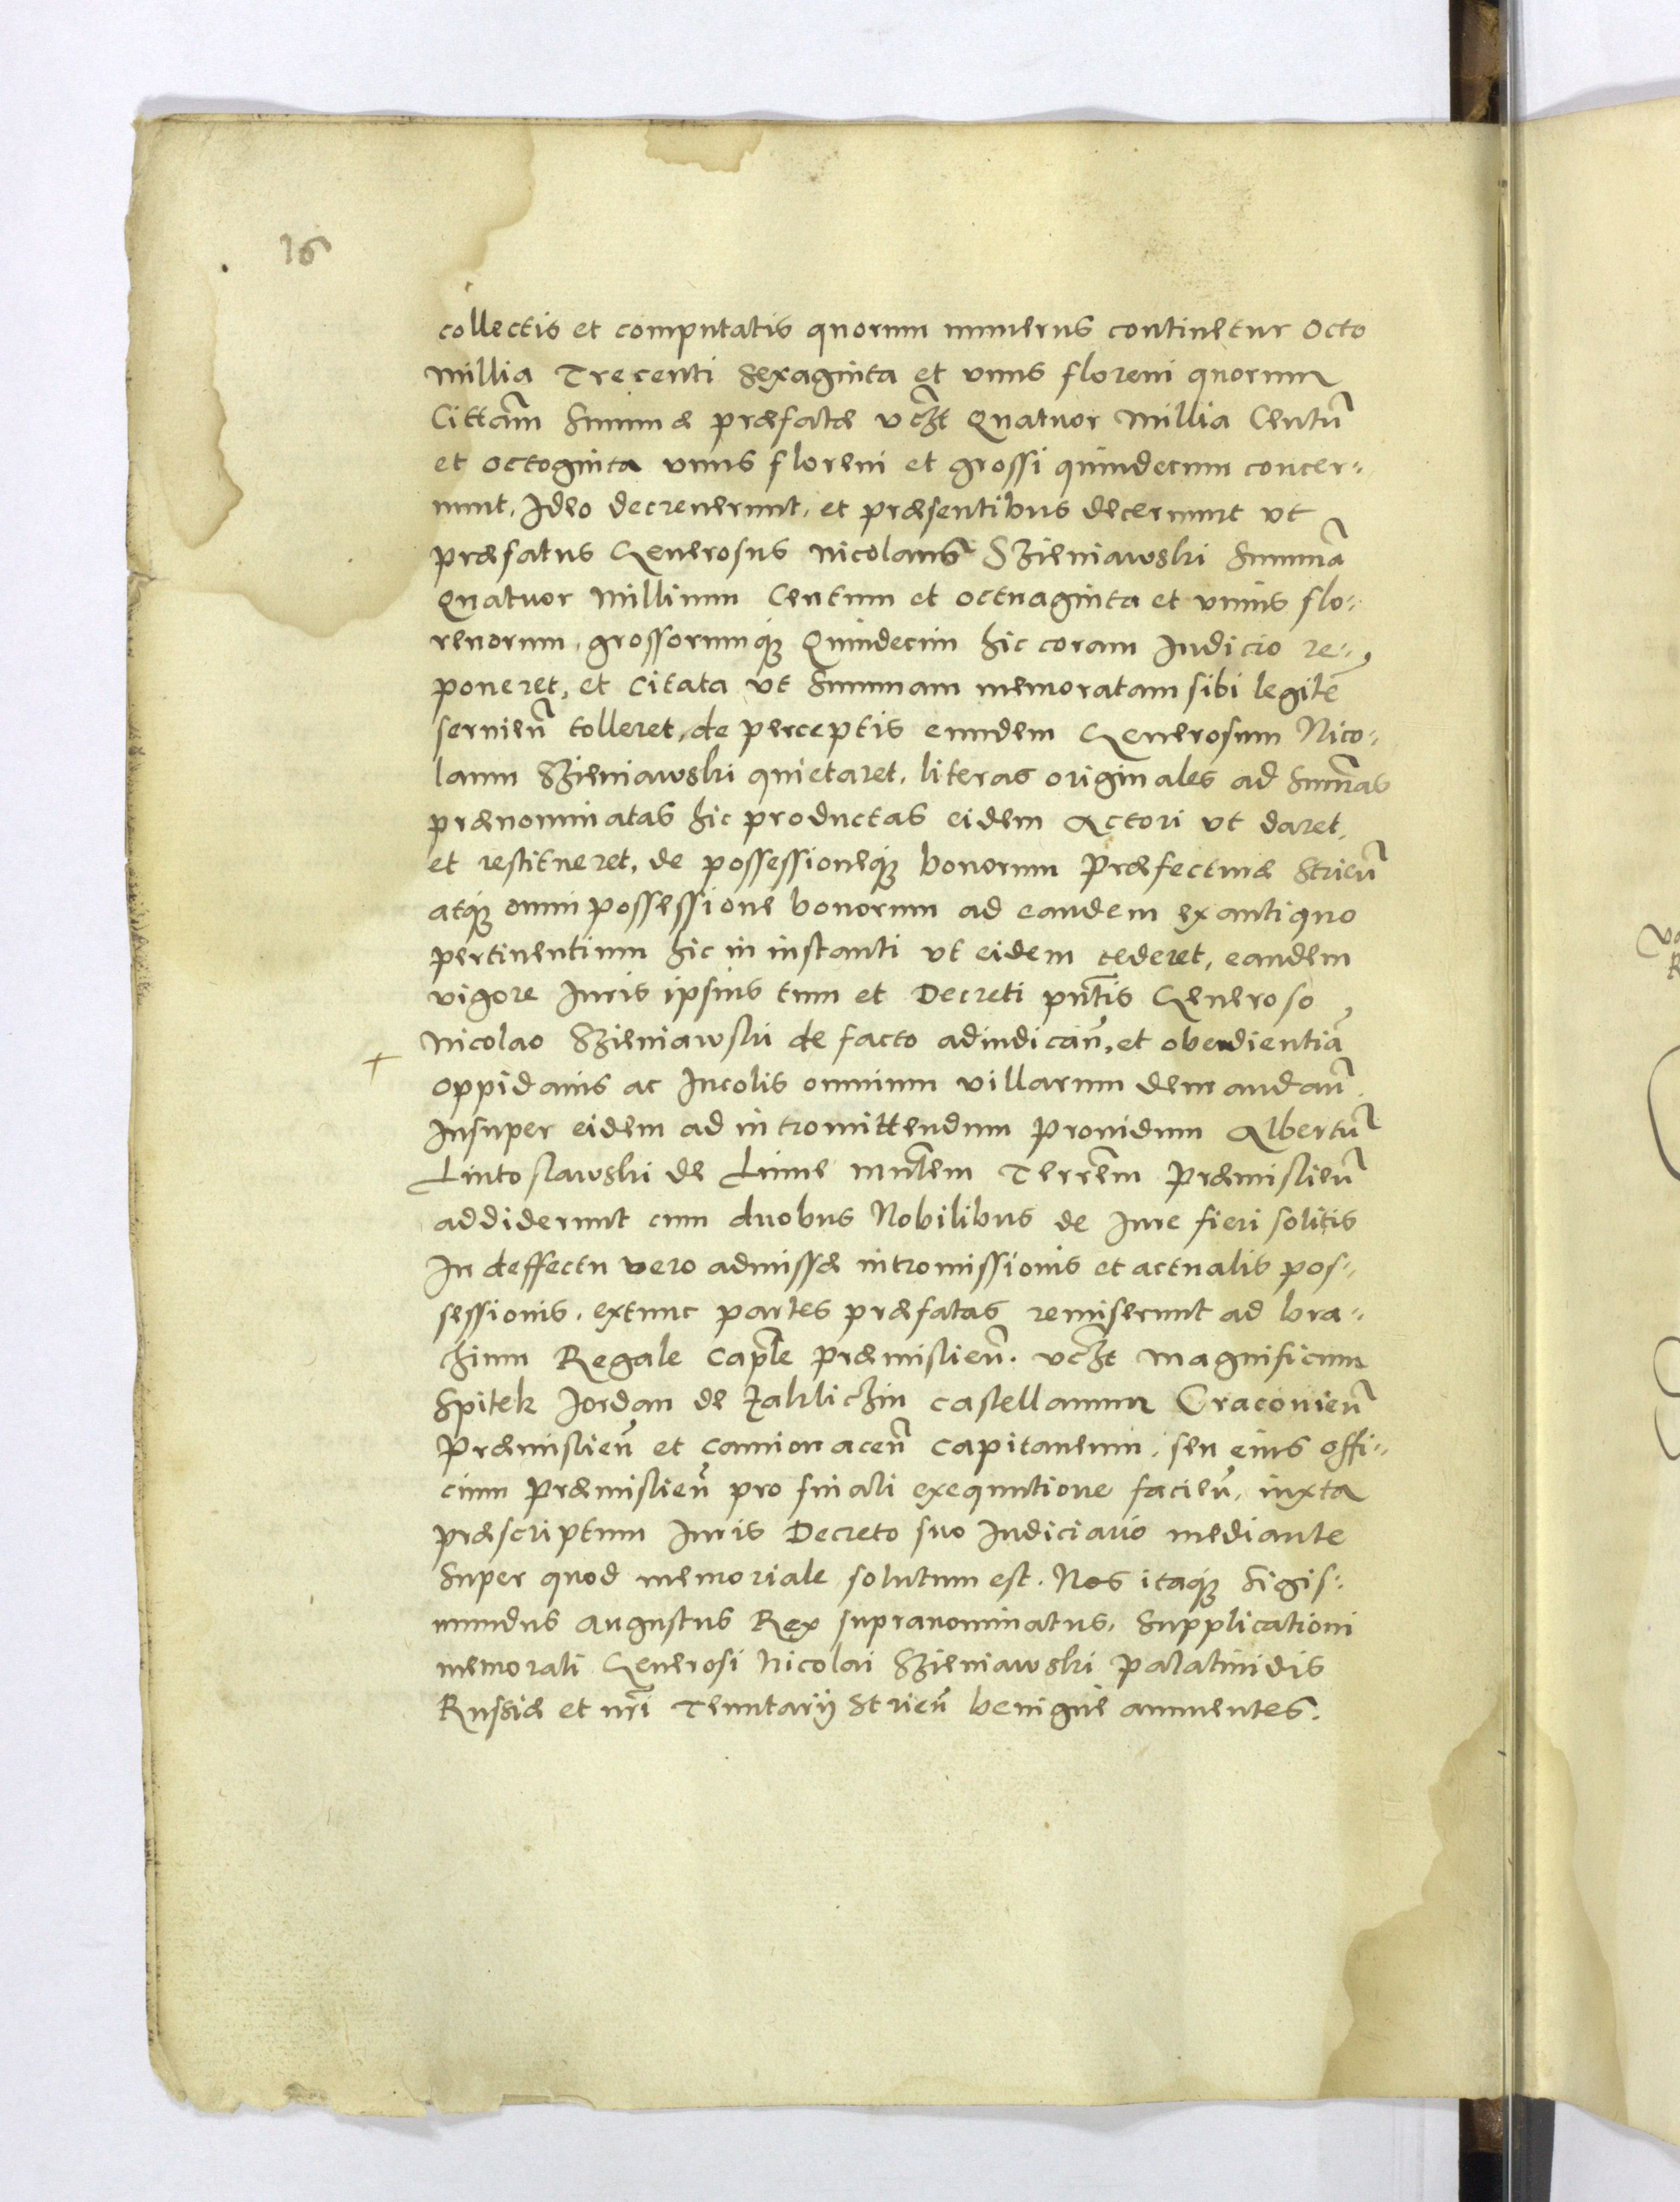 16
collectis et computatis quorum numerus continetur Octo
millia Trecenti Sexaginta et vnus floreni quorum
Cittãm Summæ præfatæ vczt Quatuor Millia Centũ
et octoginta vnus floreni et grossi quindecim concer=
nunt, Ideo decreuerunt, et præsentibus decernunt vt
præfatus Generosus Nicolaus Szieniawski Summã
Quatuor Millium Centum et octuaginta et vnius flo=
renorum, grossorumq3 Quindecim hic coram Iudicio re=
poneret, et Citata vt Summam memoratam sibi legitẽ
seruieñ tolleret, de perceptis eundem Generosum Nico=
laum Szieniawski quietaret, literas originales ad Sum̃as
prænominatas hic productas eidem Actori vt daret,
et restitueret, de possessioneq3 bonorum Præfecturæ Strieñ
atq3 omni possessione bonorum ad eandem ex antiquo
pertinentium hic in instanti vt eidem cederet, eandem
vigore Iuris ipsius tum et Decreti pñtis Generoso
Nicolao Szieniawski de facto adiudicañ, et obendientiã
+
oppidanis ac Incolis omnium villarum demandañ.
Insuper eidem ad intromittendum Prouidum Albertũ
Lintoslawski de Linne mñlem Terrẽm Præmislieñ
addiderunt cum duobus Nobilibus de Iure fieri solitis
In deffectu vero admissæ intromissionis et actualis pos=
sessionis, extunc partes præfatas remiserunt ad bra=
chium Regale Capt̃le Præmislieñ. vczt Magnificum
Spitek Jordan de Zakliczin Castellanum Cracouieñ
Præmislieñ et Camionaceñ Capitaneum, seu eius offi=
cium Præmislieñ pro finali exequutione facieñ, iuxta
præscriptum Iuris Decreto suo Iudiciario mediante
Super quod memoriale solutum est. Nos itaq3 Sigis=
mundus Augustus Rex supranominatus, Supplicationi
memorati Generosi Nicolai Szieniawski Palatinidis
Russiæ et nr̃i Tenutarij Strieñ benigne annuentes.